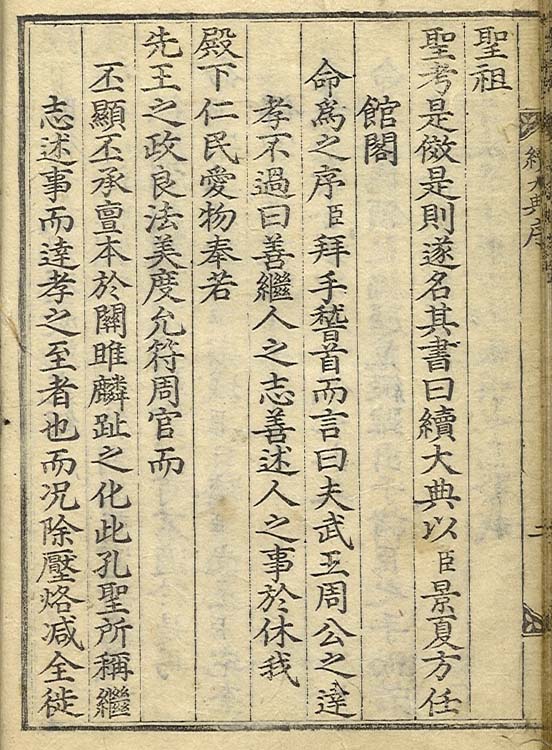 續大典序
聖祖
聖考是傚是則遂名其書曰續大典以臣景夏方任
館閣
命爲之序臣拜手稽首而言曰夫武王周公之達
孝不過曰善繼人之志善述人之事於休我
殿下仁民愛物奉若
先王之政良法美度允符周官而
丕顯丕承亶本於關雎麟趾之化此孔聖所稱繼
志述事而達孝之至者也而况除壓烙减全徙